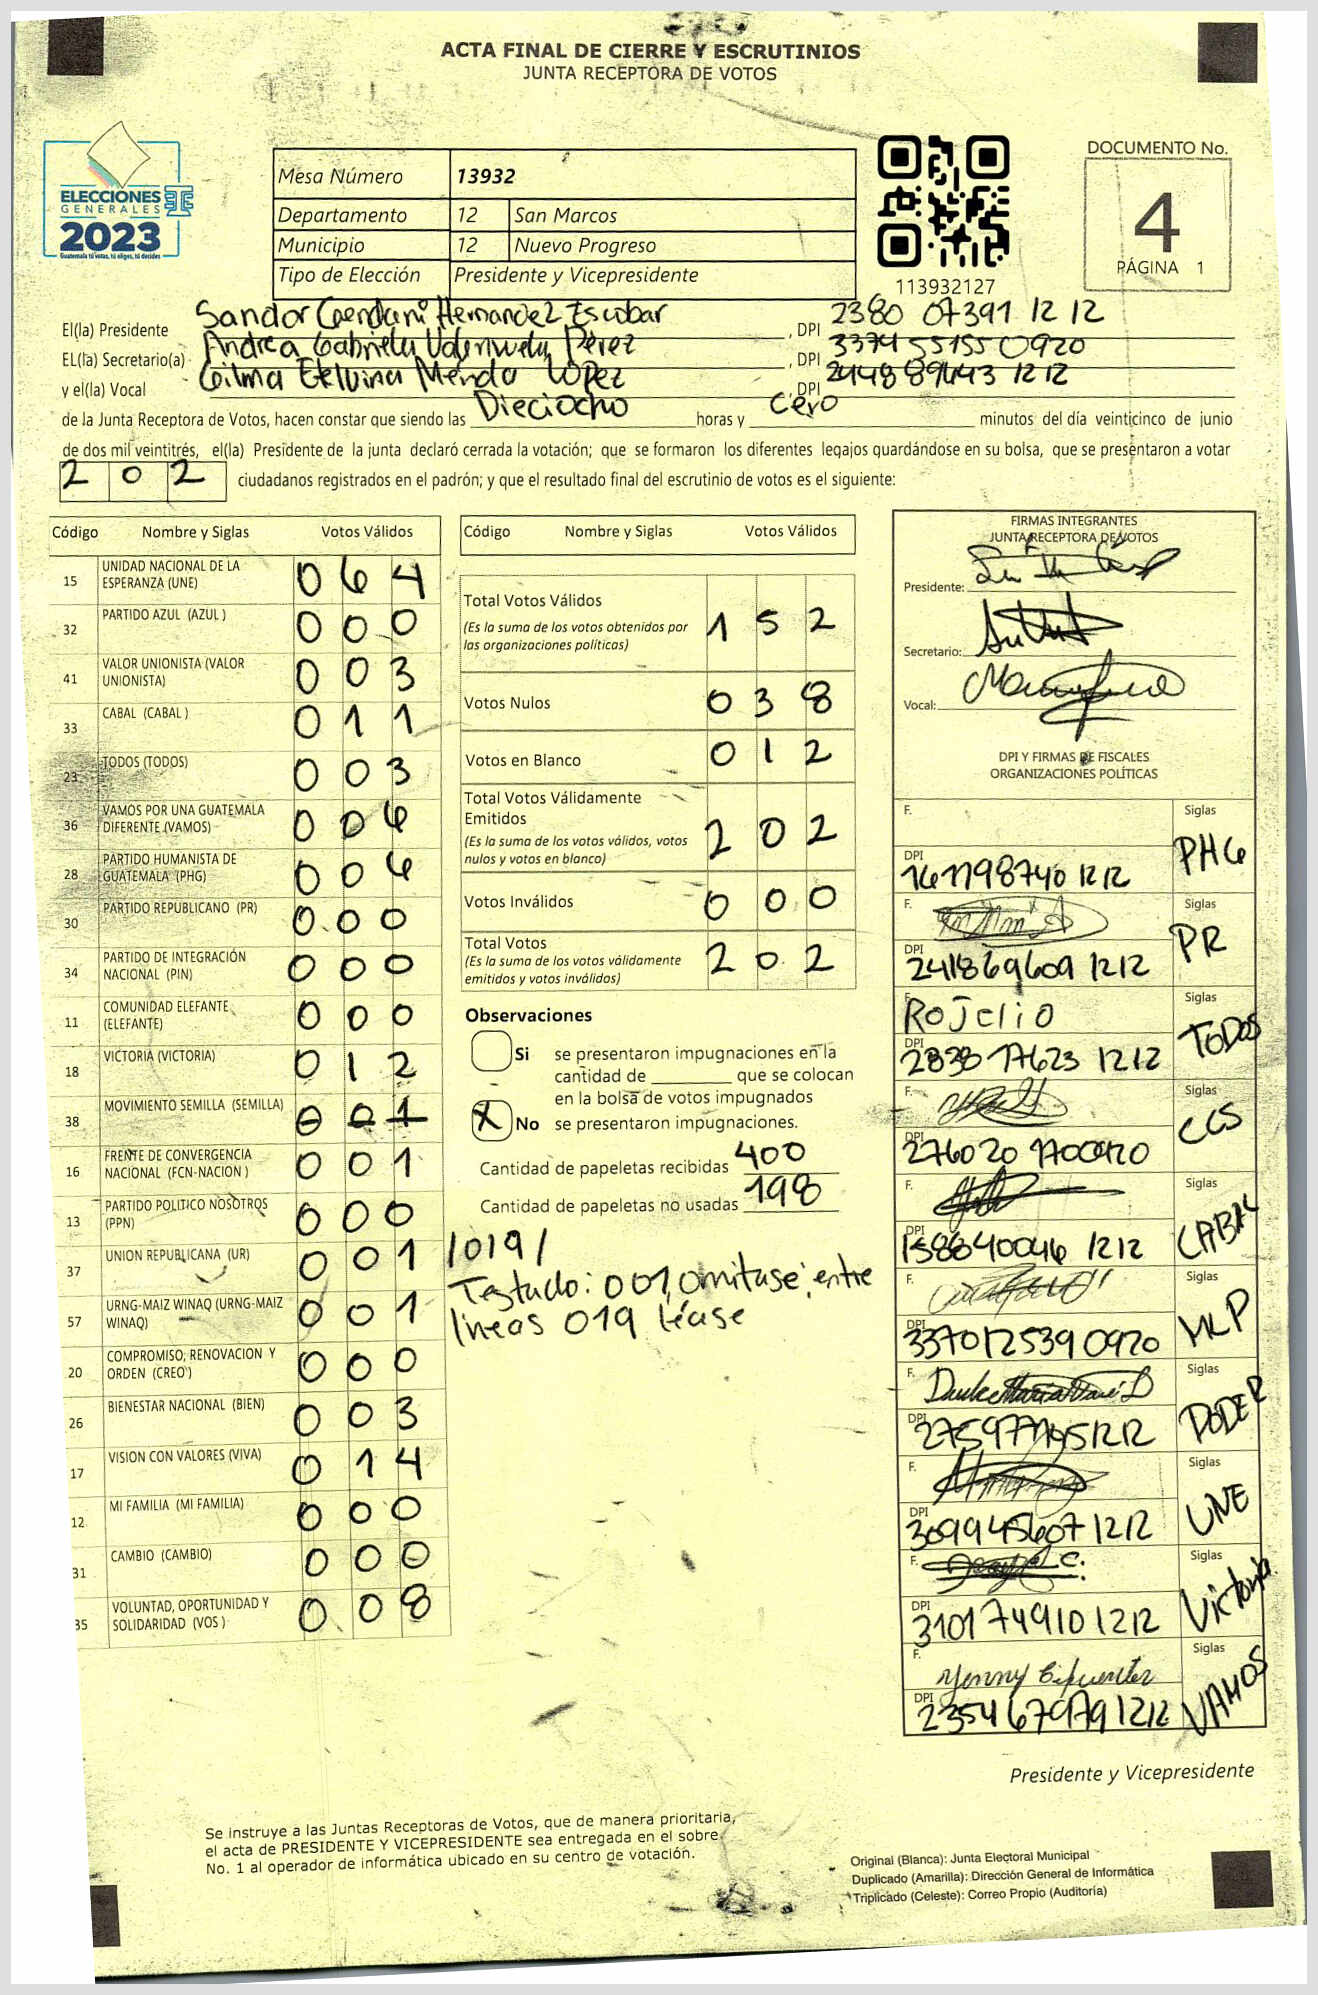 ACTA FINAL DE CIERRE Y ESCRUTINIOS
JUNTA RECEPTORA DE VOTOS
ELECCIONES
GENERALES
2023
Guatemala tú votas, tú eliges, tú decides
Mesa Número 13932
Departamento 12 San Marcos
Municipio 12 Nuevo Progreso
Tipo de Elección Presidente y Vicepresidente
113932127
DOCUMENTO No.
4
PÁGINA 1
El(la) Presidente Sandor Hernandez Escobar , DPI 2380 07391 12 12
EL(la) Secretario(a) Andrea Gabriela Pérez , DPI 3374 55155 0920
y el(la) Vocal López , DPI 2448 89443 12 12
de la Junta Receptora de Votos, hacen constar que siendo las Dieciocho horas y Cero minutos del día veinticinco de junio
de dos mil veintitrés, el(la) Presidente de la junta declaró cerrada la votación; que se formaron los diferentes legajos guardándose en su bolsa, que se presentaron a votar
202 ciudadanos registrados en el padrón; y que el resultado final del escrutinio de votos es el siguiente:
Código Nombre y Siglas Votos Válidos
15 UNIDAD NACIONAL DE LA ESPERANZA (UNE) 0 6 4
32 PARTIDO AZUL (AZUL ) 0 0 0
41 VALOR UNIONISTA (VALOR UNIONISTA) 0 0 3
33 CABAL (CABAL ) 0 1 1
23 TODOS (TODOS) 0 0 3
36 VAMOS POR UNA GUATEMALA DIFERENTE (VAMOS) 0 0 6
28 PARTIDO HUMANISTA DE GUATEMALA (PHG) 0 0 6
30 PARTIDO REPUBLICANO (PR) 0 0 0
34 PARTIDO DE INTEGRACIÓN NACIONAL (PIN) 0 0 0
11 COMUNIDAD ELEFANTE (ELEFANTE) 0 0 0
18 VICTORIA (VICTORIA) 0 1 2
38 MOVIMIENTO SEMILLA (SEMILLA) 0 0 1
16 FRENTE DE CONVERGENCIA NACIONAL (FCN-NACION ) 0 0 1
13 PARTIDO POLITICO NOSOTROS (PPN) 0 0 0
37 UNION REPUBLICANA (UR) 0 0 1
57 URNG-MAIZ WINAQ (URNG-MAIZ WINAQ) 0 0 1
20 COMPROMISO, RENOVACION Y ORDEN (CREO ) 0 0 0
26 BIENESTAR NACIONAL (BIEN) 0 0 3
17 VISION CON VALORES (VIVA) 0 1 4
12 MI FAMILIA (MI FAMILIA) 0 0 0
31 CAMBIO (CAMBIO) 0 0 0
35 VOLUNTAD, OPORTUNIDAD Y SOLIDARIDAD (VOS ) 0 0 8
Código Nombre y Siglas Votos Válidos
Total Votos Válidos 1 5 2
(Es la suma de los votos obtenidos por
las organizaciones políticas)
Votos Nulos 0 3 8
Votos en Blanco 0 1 2
Total Votos Válidamente
Emitidos 2 0 2
(Es la suma de los votos válidos, votos
nulos y votos en blanco)
Votos Inválidos 0 0 0
Total Votos 2 0 2
(Es la suma de los votos válidamente
emitidos y votos inválidos)
Observaciones
Si se presentaron impugnaciones en la
cantidad de ________ que se colocan
en la bolsa de votos impugnados
X No se presentaron impugnaciones.
Cantidad de papeletas recibidas 400
Cantidad de papeletas no usadas 198
/019/
Testado: 001, omitase, entre
lineas 019 léase
FIRMAS INTEGRANTES
JUNTA RECEPTORA DE VOTOS
Presidente:
Secretario:
Vocal:
DPI Y FIRMAS DE FISCALES
ORGANIZACIONES POLÍTICAS
F. Siglas PHG
DPI 161798740 1212
F. Siglas PR
DPI 241869609 1212
F. Rojelio Siglas TODOS
DPI 2838 17623 1212
F. Siglas
DPI
F. Siglas CABAL
DPI 158840046 1212
F. Siglas MLP
DPI 337012539 0920
F. Siglas PODER
DPI
F. Siglas UNE
DPI 309945607 1212
F. Siglas Victoria
DPI 310174910 1212
F. Yenny Cifuentes Siglas VAMOS
DPI 2354 67979 1212
Presidente y Vicepresidente
Se instruye a las Juntas Receptoras de Votos, que de manera prioritaria,
el acta de PRESIDENTE Y VICEPRESIDENTE sea entregada en el sobre
No. 1 al operador de informática ubicado en su centro de votación.
Original (Blanca): Junta Electoral Municipal
Duplicado (Amarilla): Dirección General de Informática
Triplicado (Celeste): Correo Propio (Auditoría)